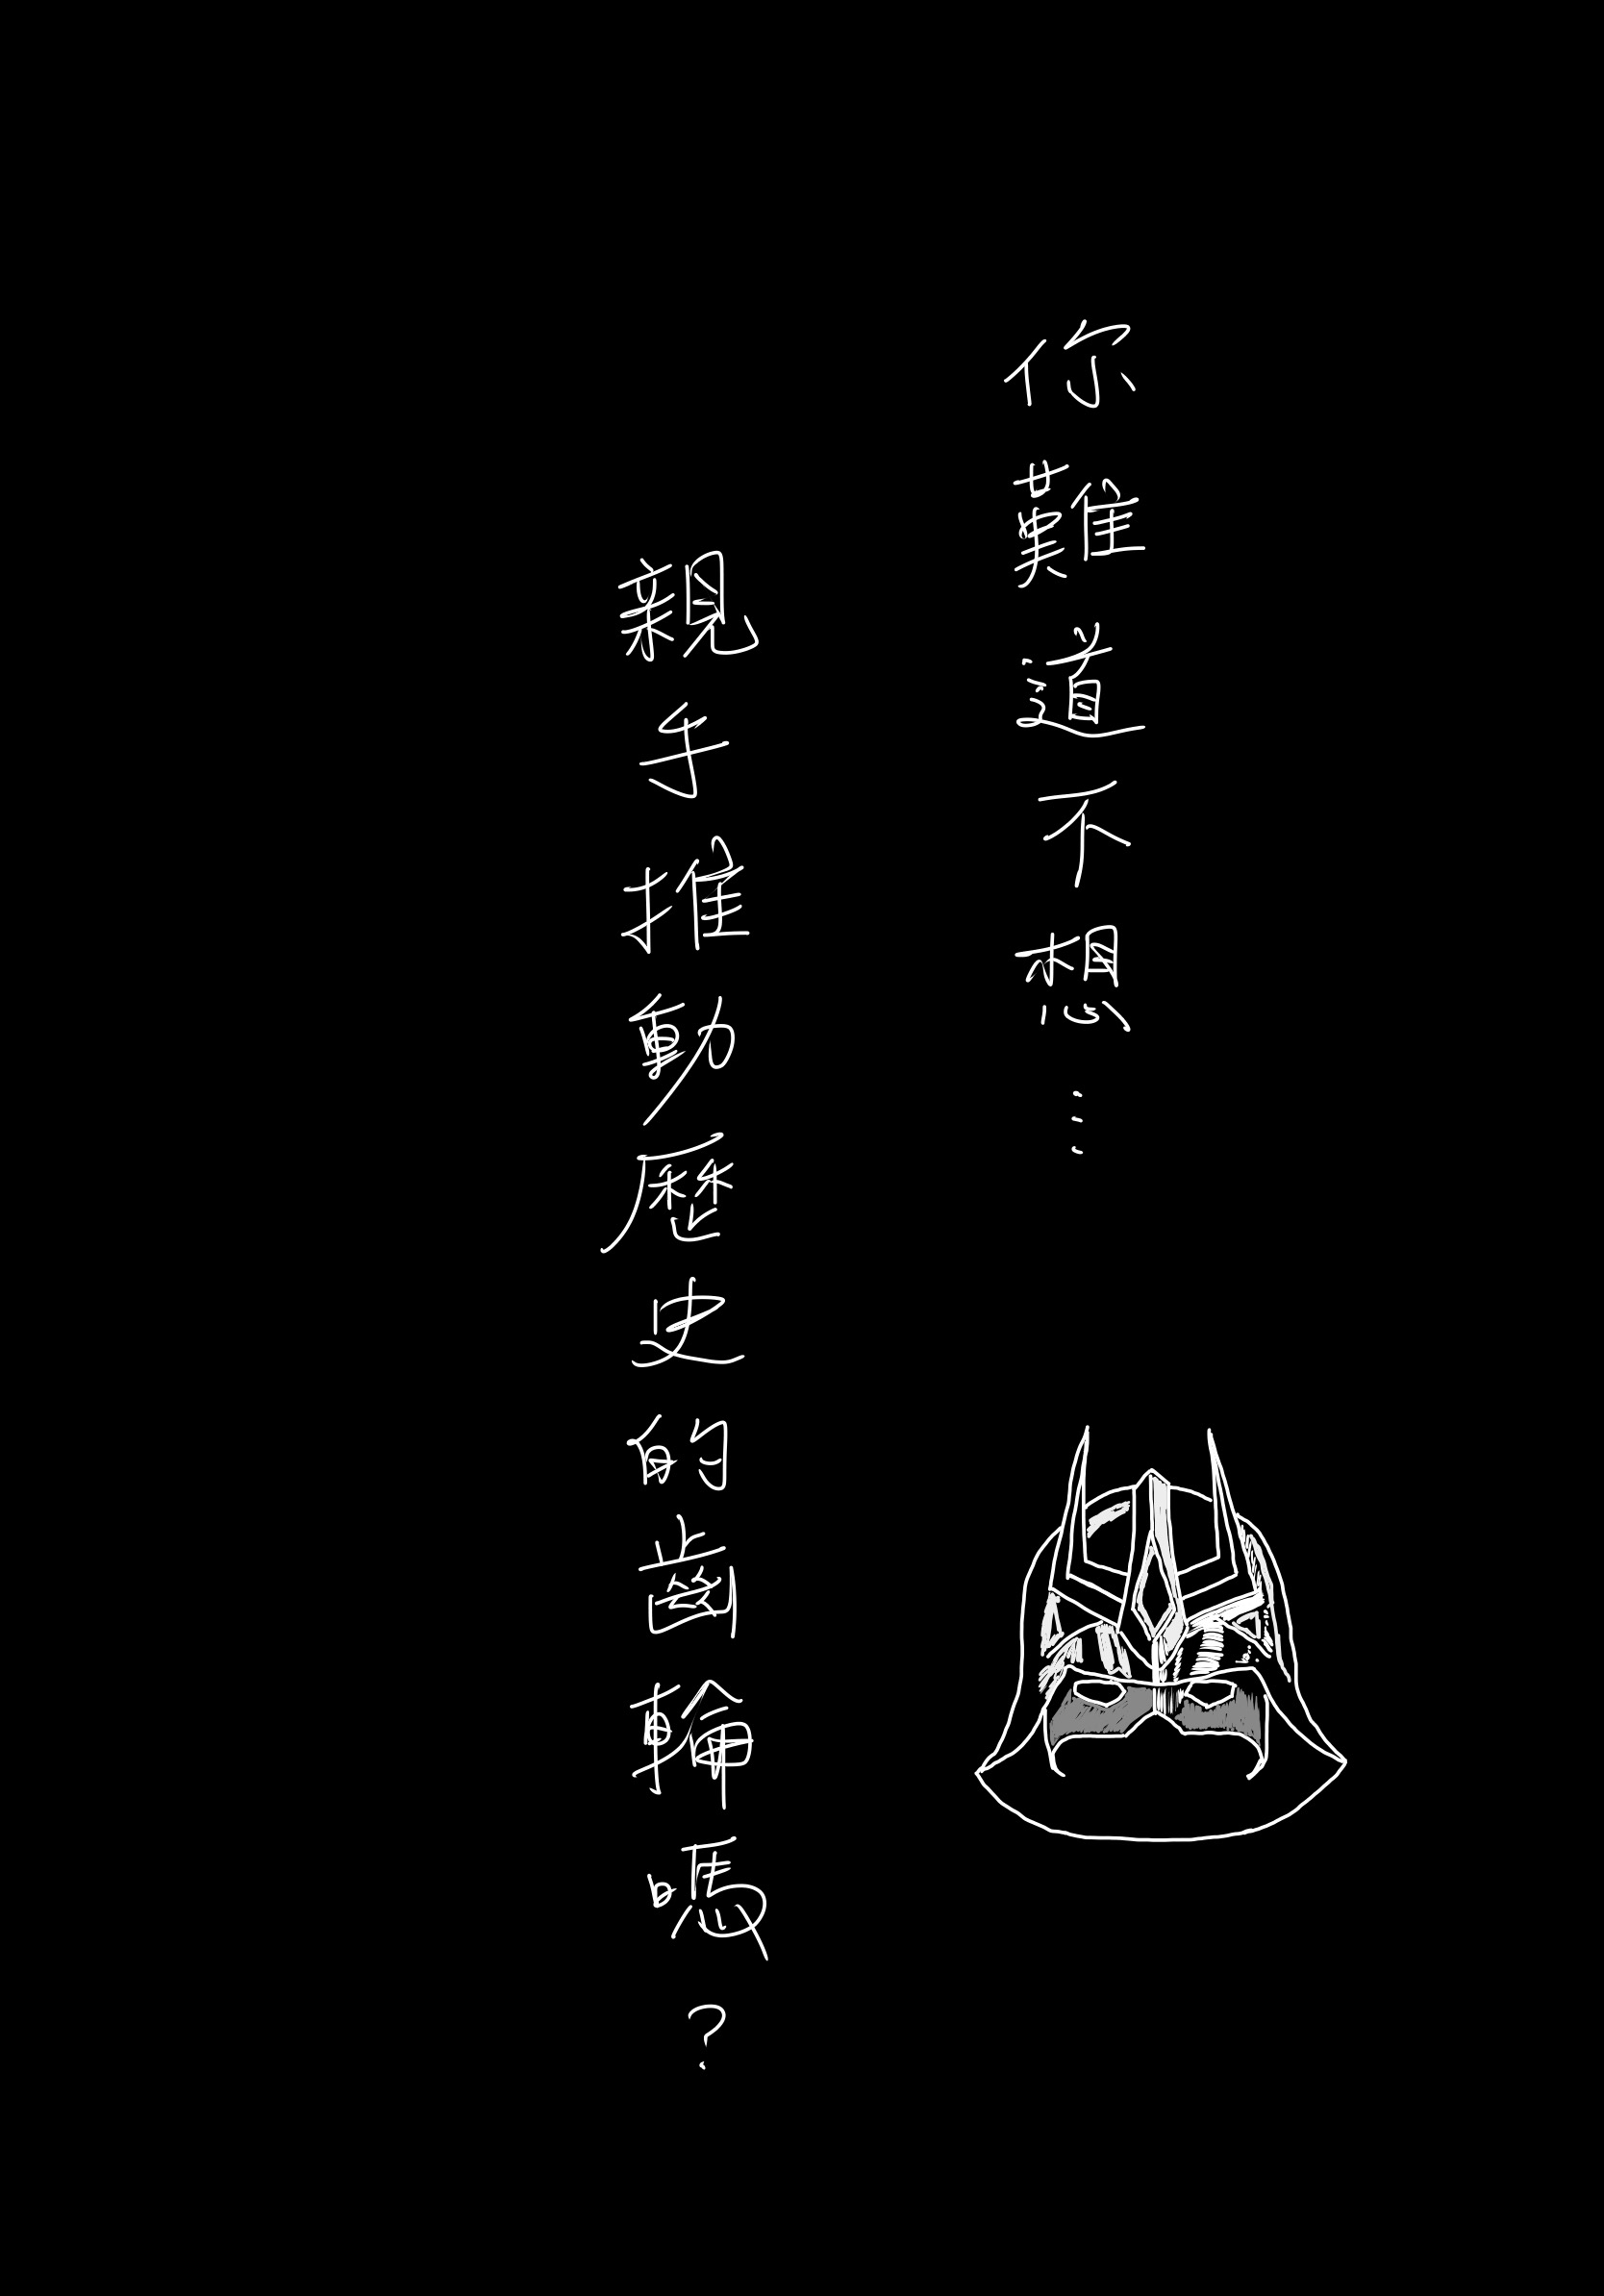 你難道不想…
親手推動歷史的齒輪嗎？